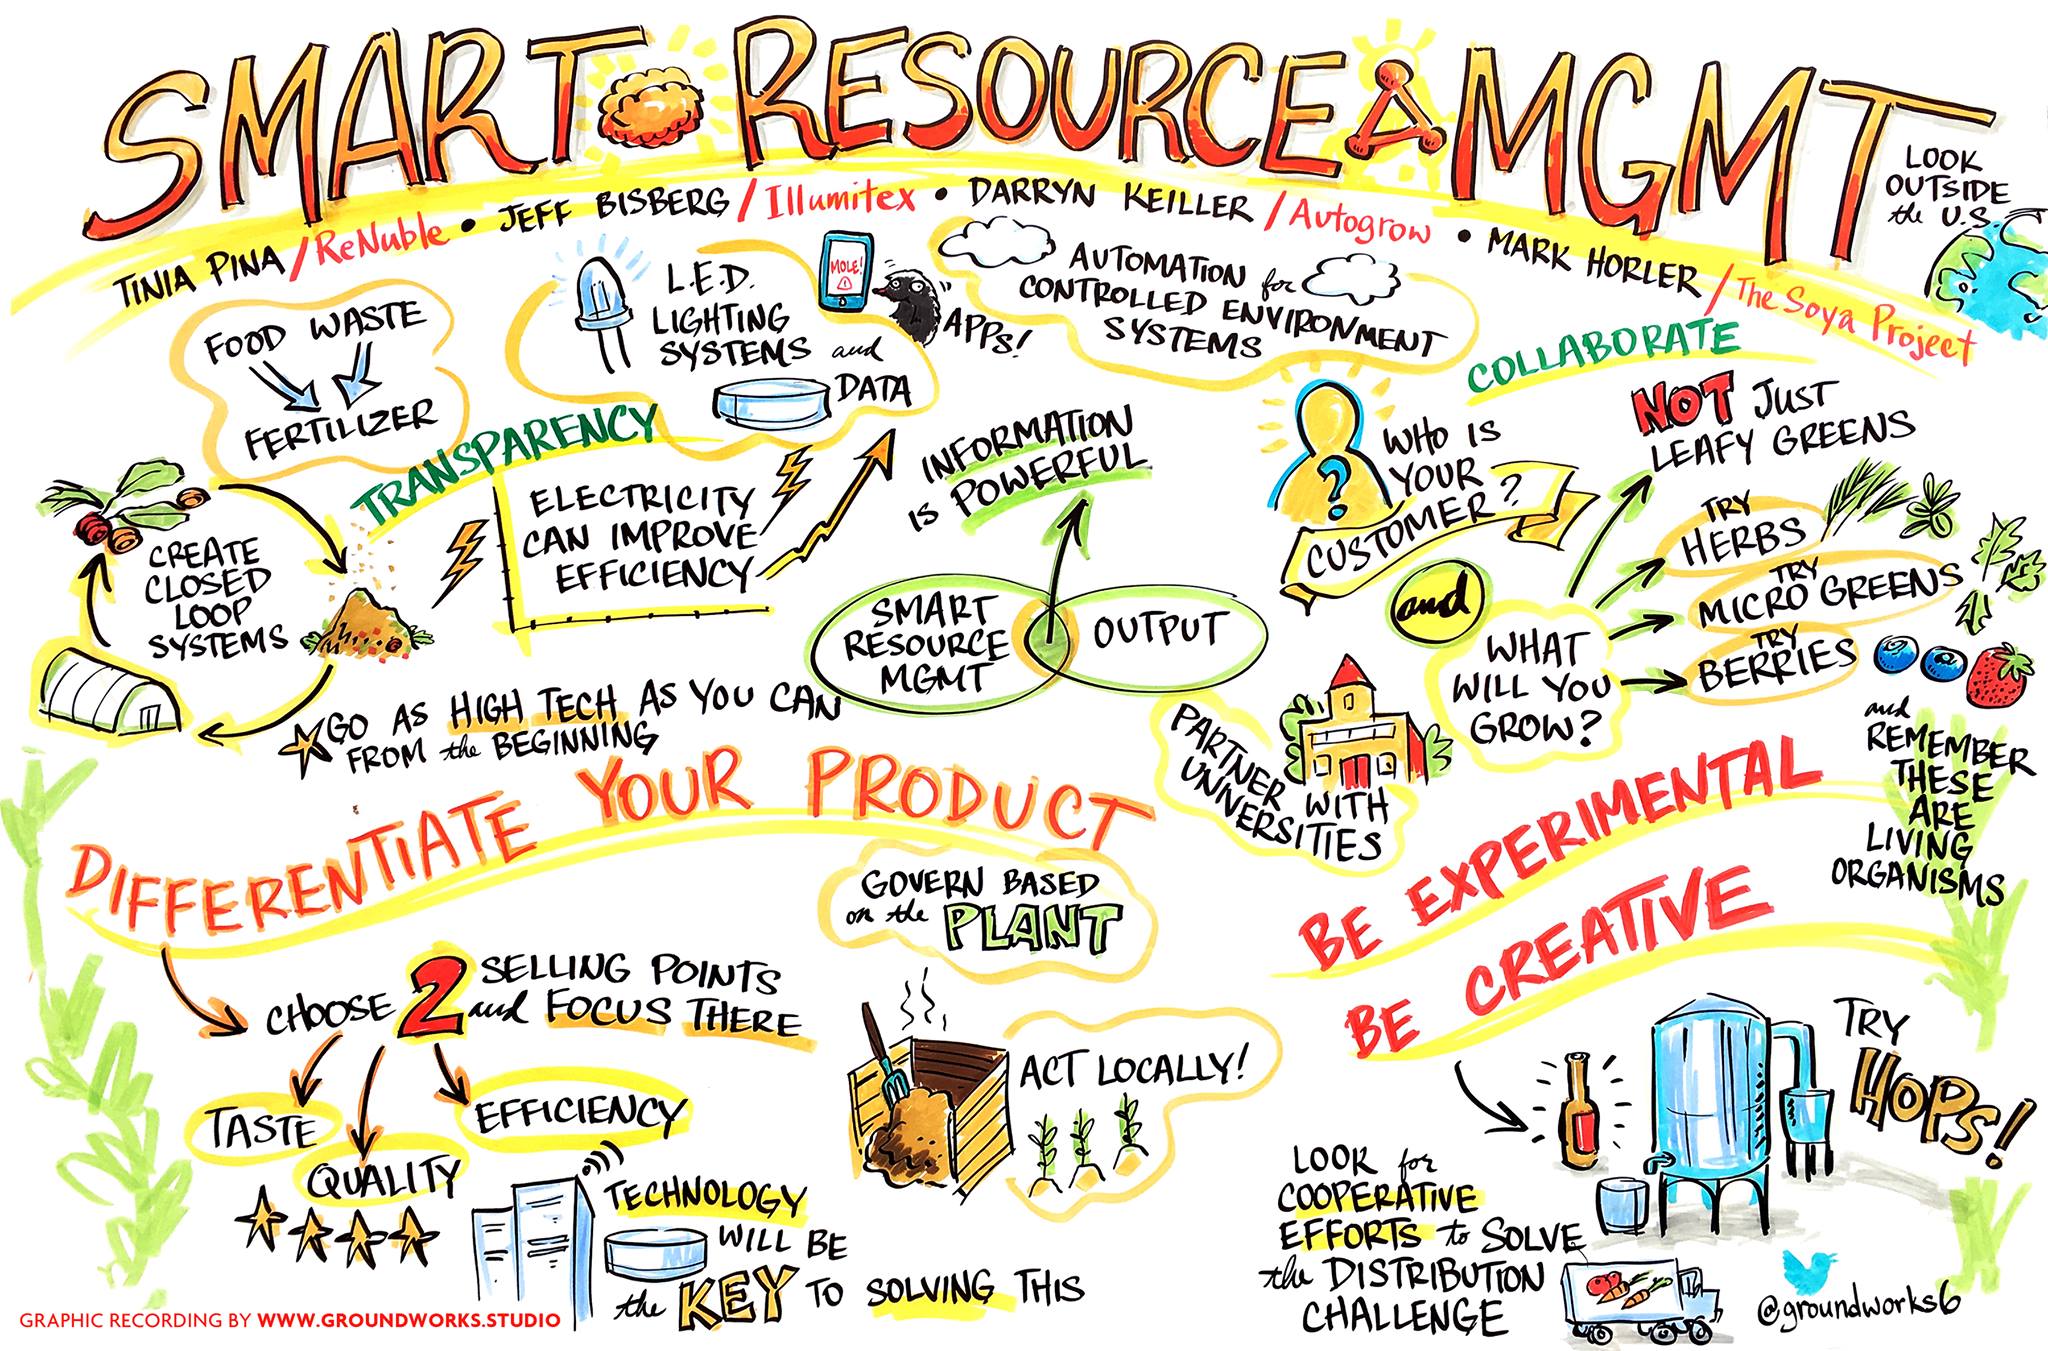 SMART RESOURCE MGMT
TINIA PINA / ReNuble • JEFF BISBERG / Illumitex • DARRYN KEILLER / Autogrow • MARK HORLER / The Soya Project
LOOK
OUTSIDE
the U.S.
FOOD WASTE
FERTILIZER
L.E.D.
LIGHTING
SYSTEMS and
DATA
MOLE!
APPS!
AUTOMATION for
CONTROLLED ENVIRONMENT
SYSTEMS
COLLABORATE
TRANSPARENCY
CREATE
CLOSED
LOOP
SYSTEMS
ELECTRICITY
CAN IMPROVE
EFFICIENCY
INFORMATION
IS POWERFUL
SMART
RESOURCE
MGMT
OUTPUT
WHO IS
YOUR
CUSTOMER?
?
and
WHAT
WILL YOU
GROW?
NOT JUST
LEAFY GREENS
TRY
HERBS
TRY
MICRO GREENS
TRY
BERRIES
and
REMEMBER
THESE
ARE
LIVING
ORGANISMS
GO AS HIGH TECH AS YOU CAN
FROM the BEGINNING
PARTNER WITH
UNIVERSITIES
DIFFERENTIATE YOUR PRODUCT
CHOOSE 2 SELLING POINTS
and FOCUS THERE
TASTE
QUALITY
EFFICIENCY
TECHNOLOGY
WILL BE
the KEY TO SOLVING THIS
GOVERN BASED
on the PLANT
ACT LOCALLY!
BE EXPERIMENTAL
BE CREATIVE
TRY
HOPS!
LOOK for
COOPERATIVE
EFFORTS to SOLVE
the DISTRIBUTION
CHALLENGE
@groundworks6
GRAPHIC RECORDING BY WWW.GROUNDWORKS.STUDIO